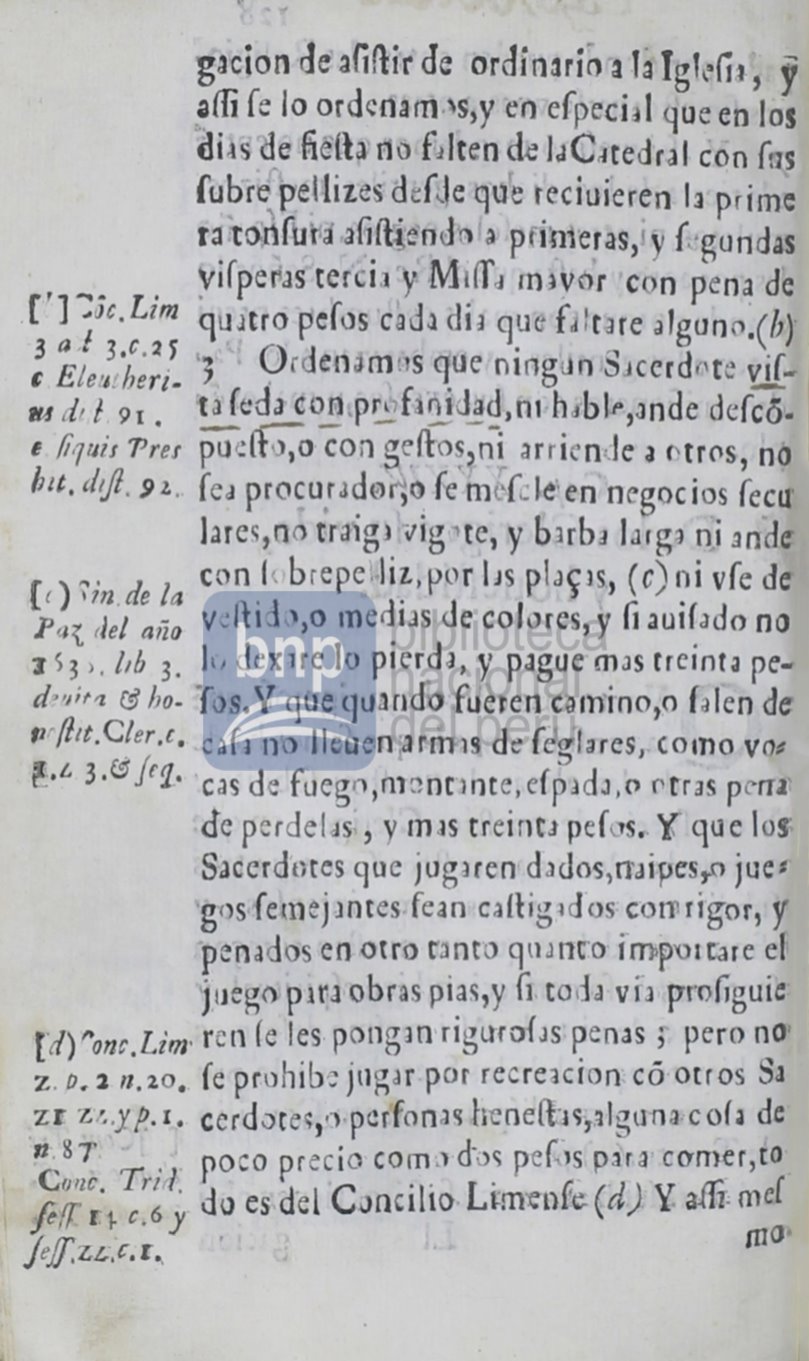 gacion de asistir de ordinario a la Iglesia, ẏ
assi se lo ordenamos,y en especial que en los
dias de fiesta no falten de la Catedral con sus
subre pellizes desde que reciuieren la prime
ra tonsura asistiendo a primeras, y segundas
visperas tercia y Missa mayor con pena de
quatro pesos cada dia que faltare alguno.(b)
3 Ordenamos que ningun Sacerdote vis-
ta seda con profanidad,ni hable,ande descõ-
puesto,o con gestos,ni arriende a otros, no
sea procurador,o se mescle en negocios secu
lares,no traiga vigote, y barba larga ni ande
con sobrepelliz,por las plaças, (c) ni vse de
vestido,o medias de colores,y si auisado no
lo dexare lo pierda, y pague mas treinta pe-
sos.Y que quando fueren camino,o salen de
casa no lleuen armas de seglares, como vo-
cas de fuego,montante,espada,o otras pena
de perdelas, y mas treinta pesos. Y que los
Sacerdotes que jugaren dados,naipes,o jue-
gos semejantes sean castigados con rigor, y
penados en otro tanto quanto importare el
juego para obras pias,y si toda via prosiguie
ren se les pongan rigurosas penas ; pero no
se prohibe jugar por recreacion cõ otros Sa
cerdotes,o personas henestas,alguna cosa de
poco precio como dos pesos para comer,to
do es del Concilio Limense (d) Y assi mes
mo
Cõc.Lim
3 a t 3.c.25
c Eleutheri-
us dist 91.
e siquis Pres
bit. dist. 92.
[c) Sin. de la
Paz del año
lib 3.
de vita & ho-
nestit.Cler.c.
3.& seq.
[d) Conc.Lim
2. p. 2 n.20.
21 22.y p.1.
n 87
Conc. Trid.
sess 14 c.6 y
sess.22.c.1.
bnp biblioteca
nacional
del perú